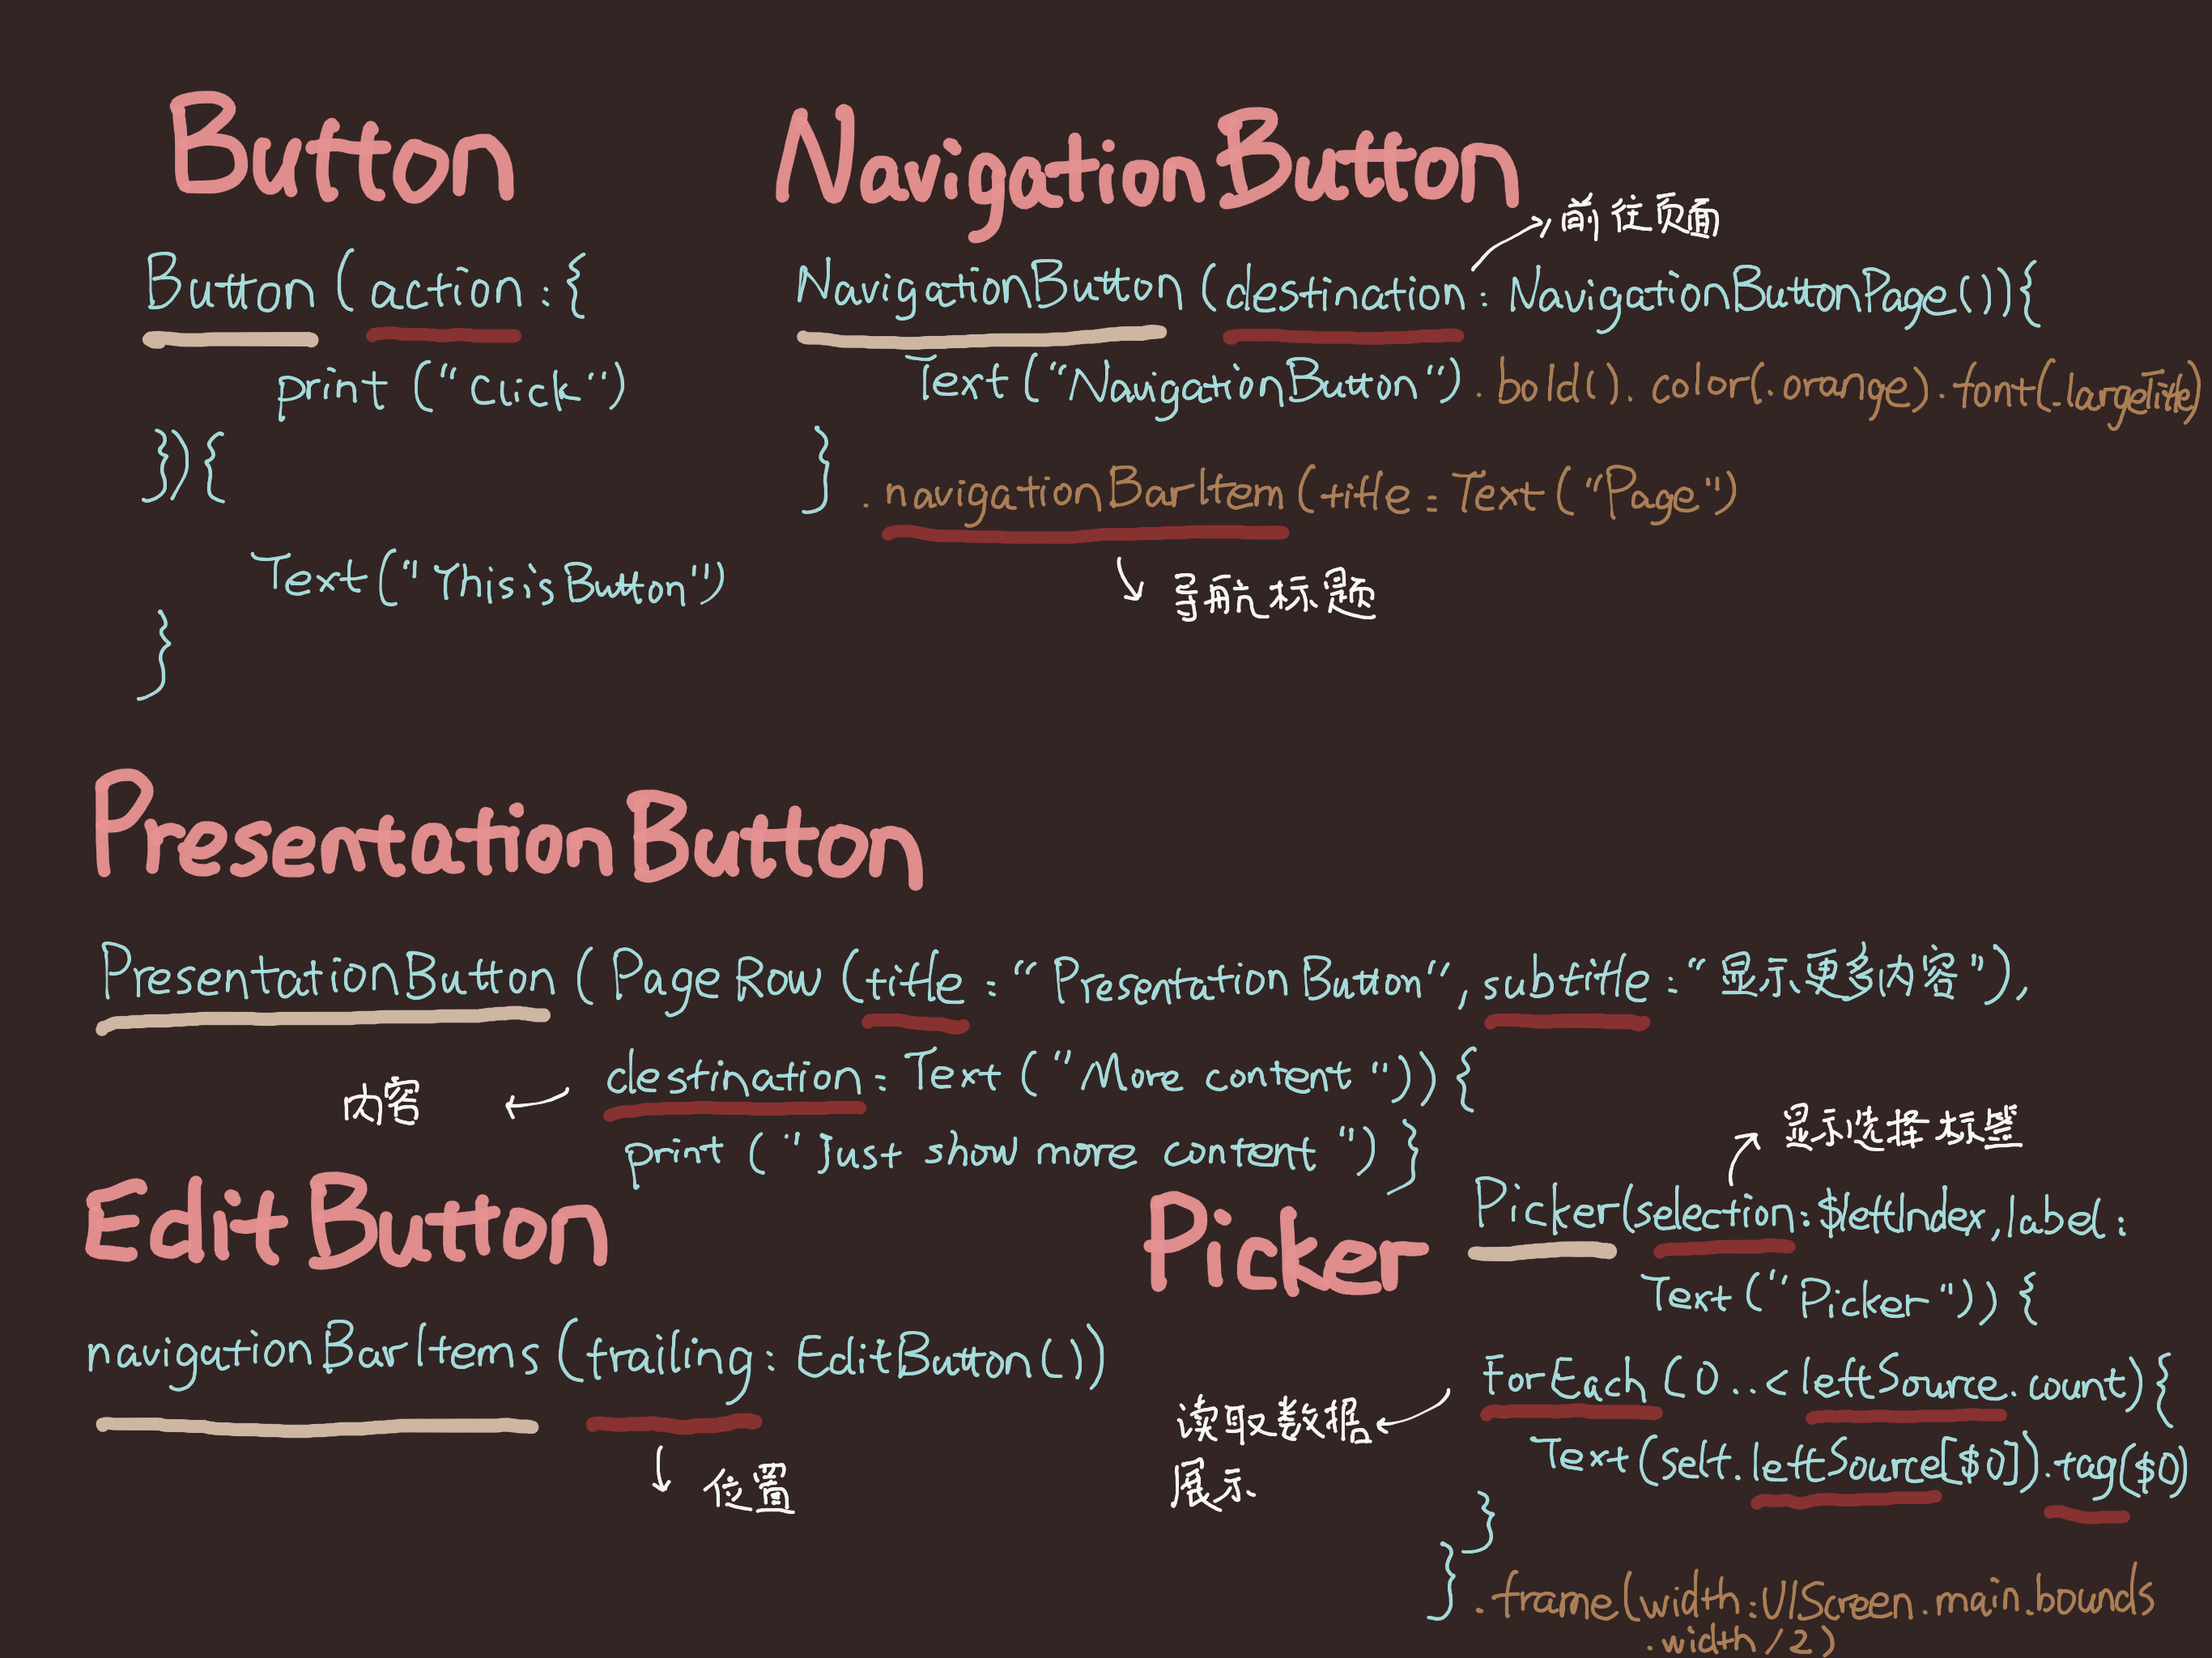 Button
Button (action:{
print ("Click")
}){
Text("ThisisButton")
}
NavigationButton
前往页面
NavigationButton (destination: NavigationButtonPage()){
Text("NavigationButton").bold().color(.orange).font(.largeTitle)
}.navigationBarItem(title:Text("Page")
导航标题
PresentationButton
PresentationButton (PageRow (title:"Presentation Button", subtitle:"显示更多内容"),
destination:Text("More content")){
内容
print ("Just show more content")}
EditButton
navigationBarItems (trailing: EditButton())
位置
Picker
显示选择标签
Picker(selection:$leftIndex,label:
Text("Picker")){
ForEach (0..<leftSource.count){
读取数据
展示
Text(self.leftSource[$0]).tag($0)
}
}.frame(width:UIScreen.main.bounds
.width/2)